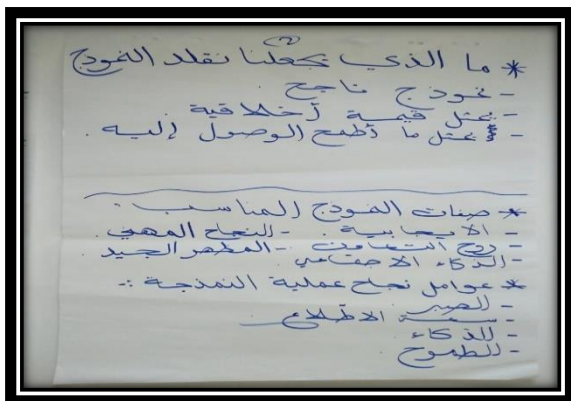 (٢)
* ما الذي يجعلنا نقلد النموذج
- نموذج ناجح
- يمثل قيمة أخلاقية
- يمثل ما أطمح الوصول إليه .
* صفات النموذج المناسب :
- الايجابية . - النجاح المهني .
- روح التعاون - المظهر الجيد
- الذكاء الاجتماعي
* عوامل نجاح عملية النمذجة :-
- الصبر
- سعة الاطلاع
- الذكاء
- الطموح